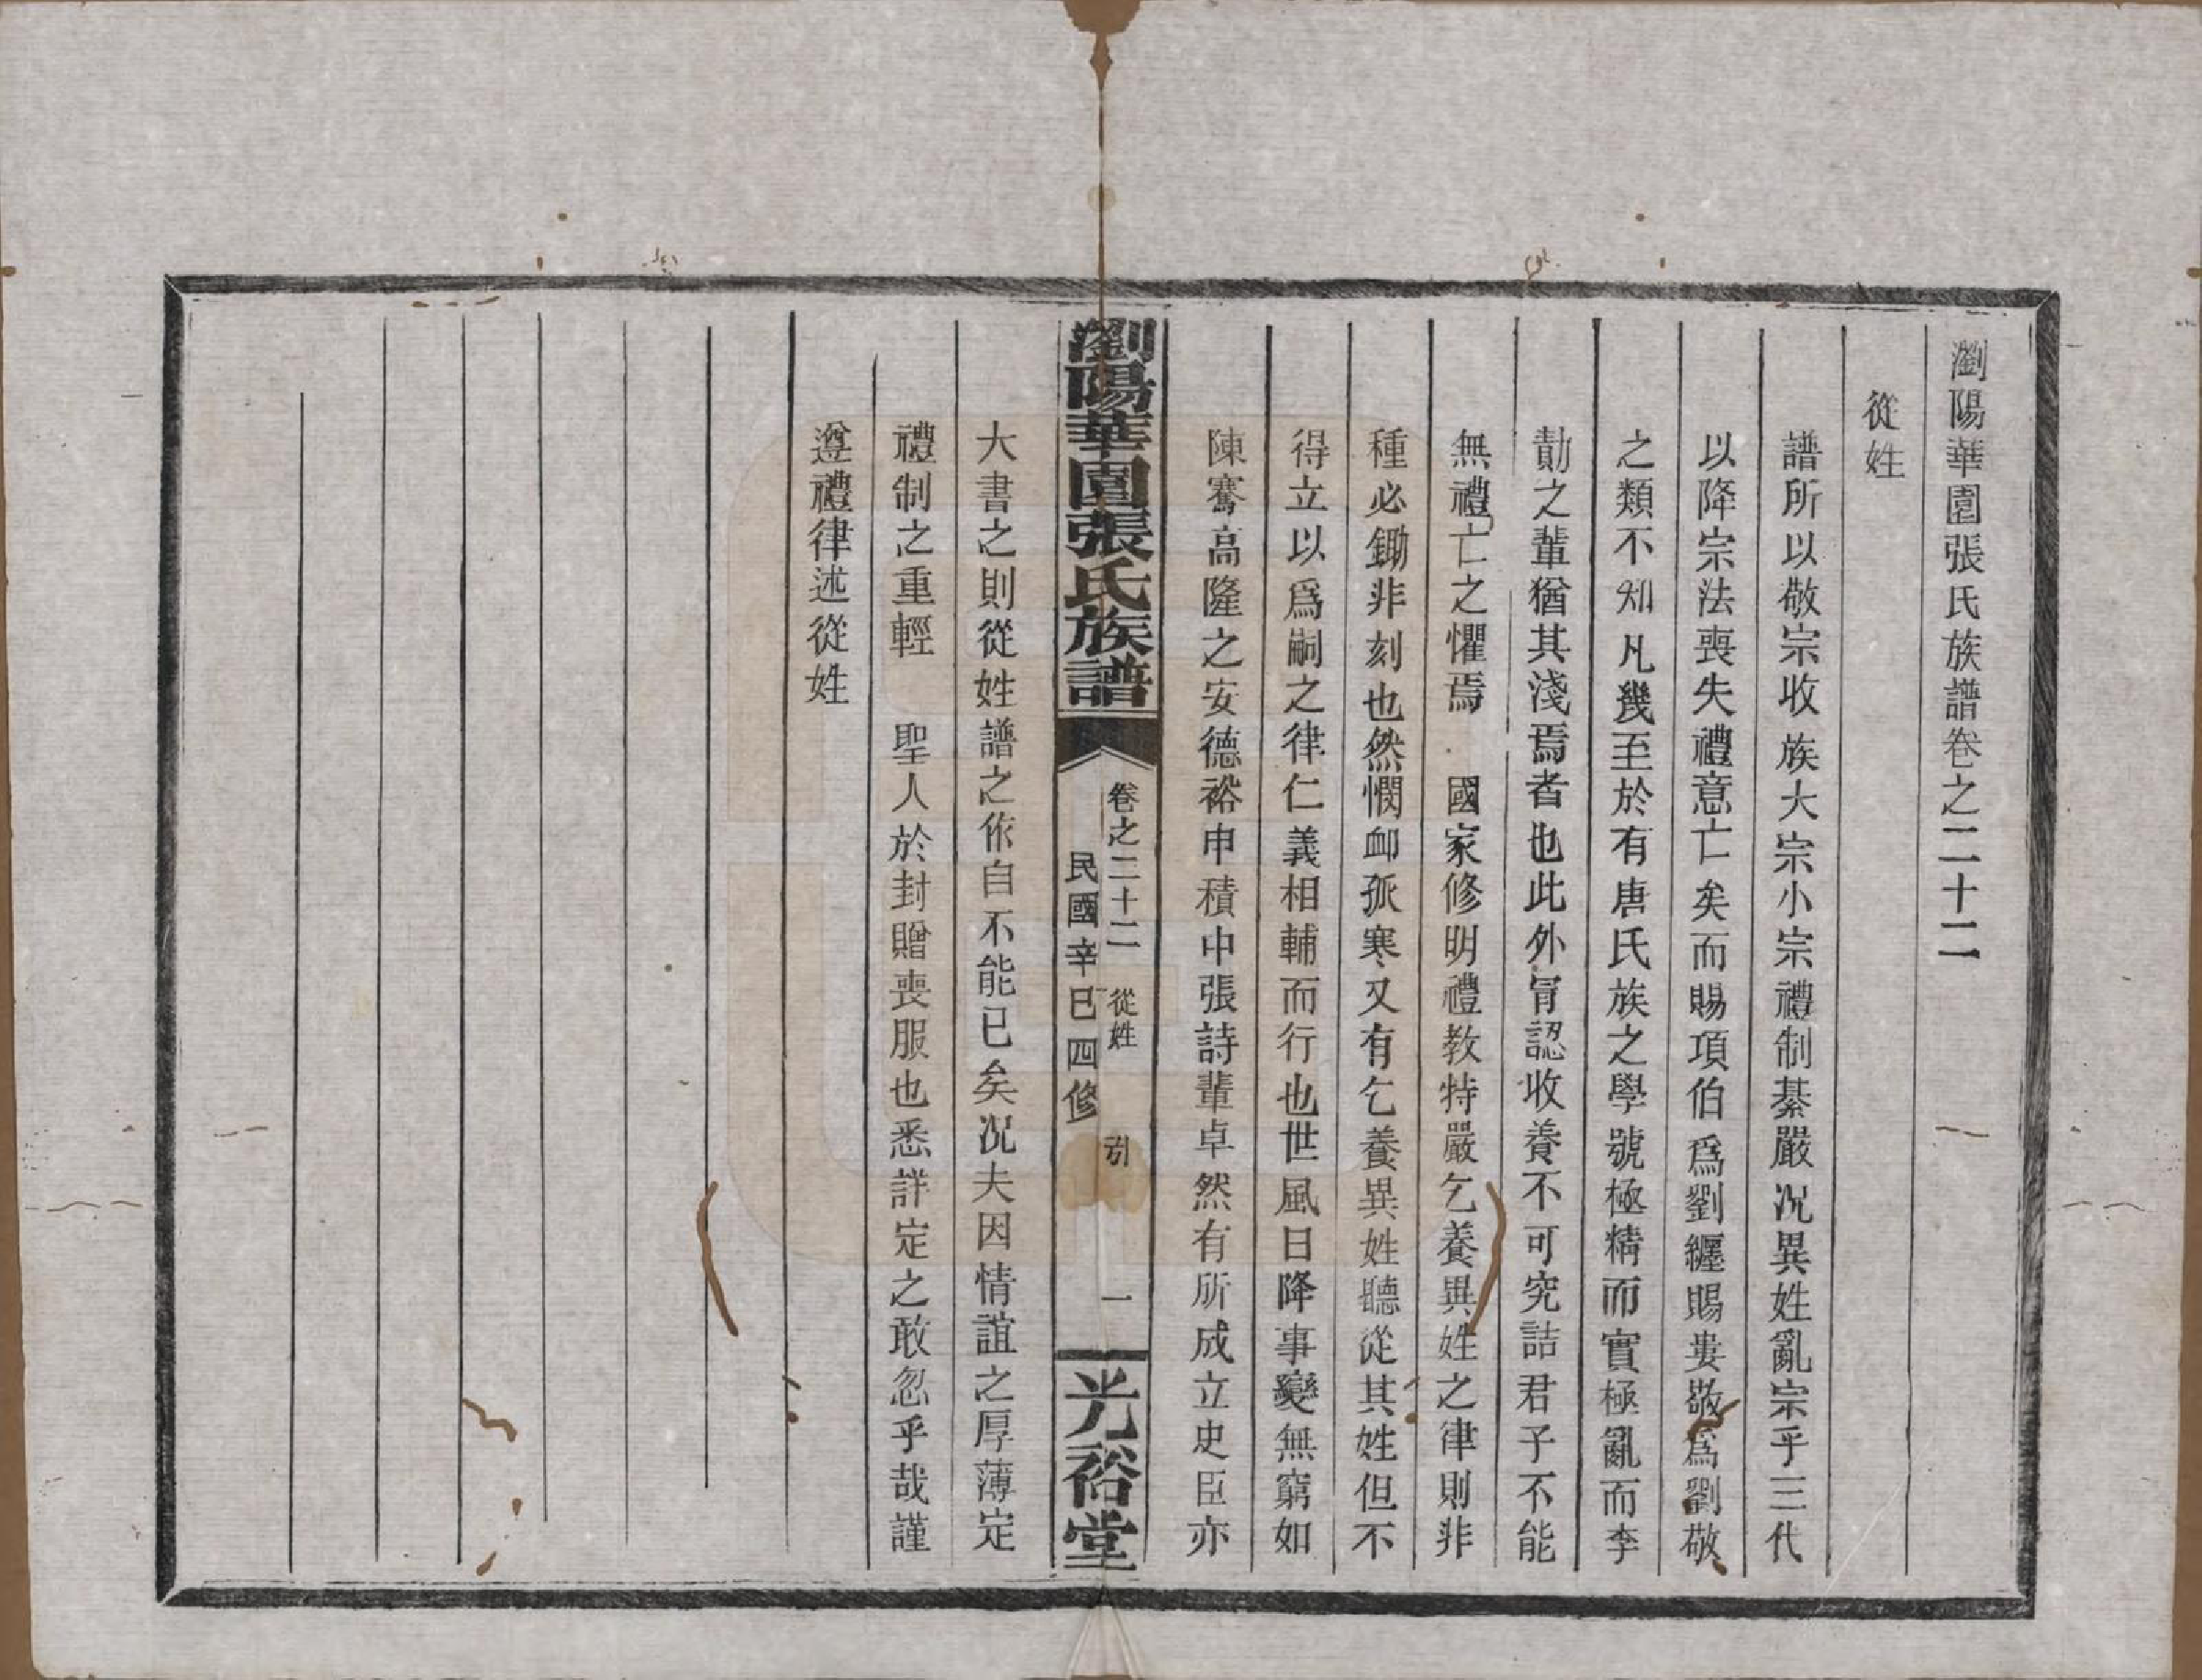 瀏陽華園張氏族譜卷之二十二
從姓
譜所以敬宗收族大宗小宗禮制綦嚴况異姓亂宗乎三代
以降宗法喪失禮意亡矣而賜項伯爲劉纏賜婁敬爲劉敬
之類不知凡幾至於有唐氏族之學號極精而實極亂而李
勣之輩猶其淺焉者也此外冒認收養不可究詰君子不能
無禮亡之懼焉　國家修明禮教特嚴乞養異姓之律則非
種必鋤非刻也然憫卹孤寒又有乞養異姓聽從其姓但不
得立以爲嗣之律仁義相輔而行也世風日降事變無窮如
陳騫高隆之安德裕申積中張詩輩卓然有所成立史臣亦
瀏陽華園張氏族譜
卷之二十二　從姓　引　一
民國辛巳四修
光裕堂
大書之則從姓譜之作自不能已矣况夫因情誼之厚薄定
禮制之重輕　聖人於封贈喪服也悉詳定之敢忽乎哉謹
遵禮律述從姓